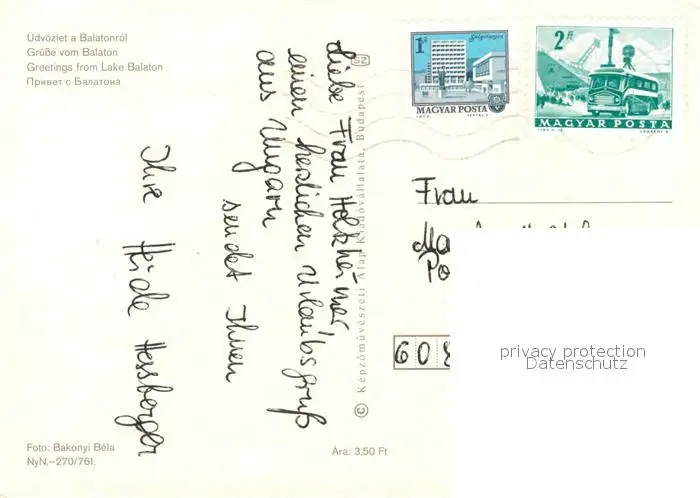 Üdvözlet a Balatonról
Grüße vom Balaton
Greetings from Lake Balaton
Привет с Балатона
Liebe Frau Holzheimer
einen herzlichen Urlaubsgruß
aus Ungarn
sendet Ihnen
Ihre Heide Hessberger
SZ
© Képzőművészeti Alap Kiadóvállalata, Budapest
1Ft
Salgótarján
MAGYAR POSTA
1972
2 Ft
MAGYAR POSTA
Frau
Ma
Po
60
privacy protection
Datenschutz
Foto: Bakonyi Béla
NyN.–270/761.
Ára: 3,50 Ft